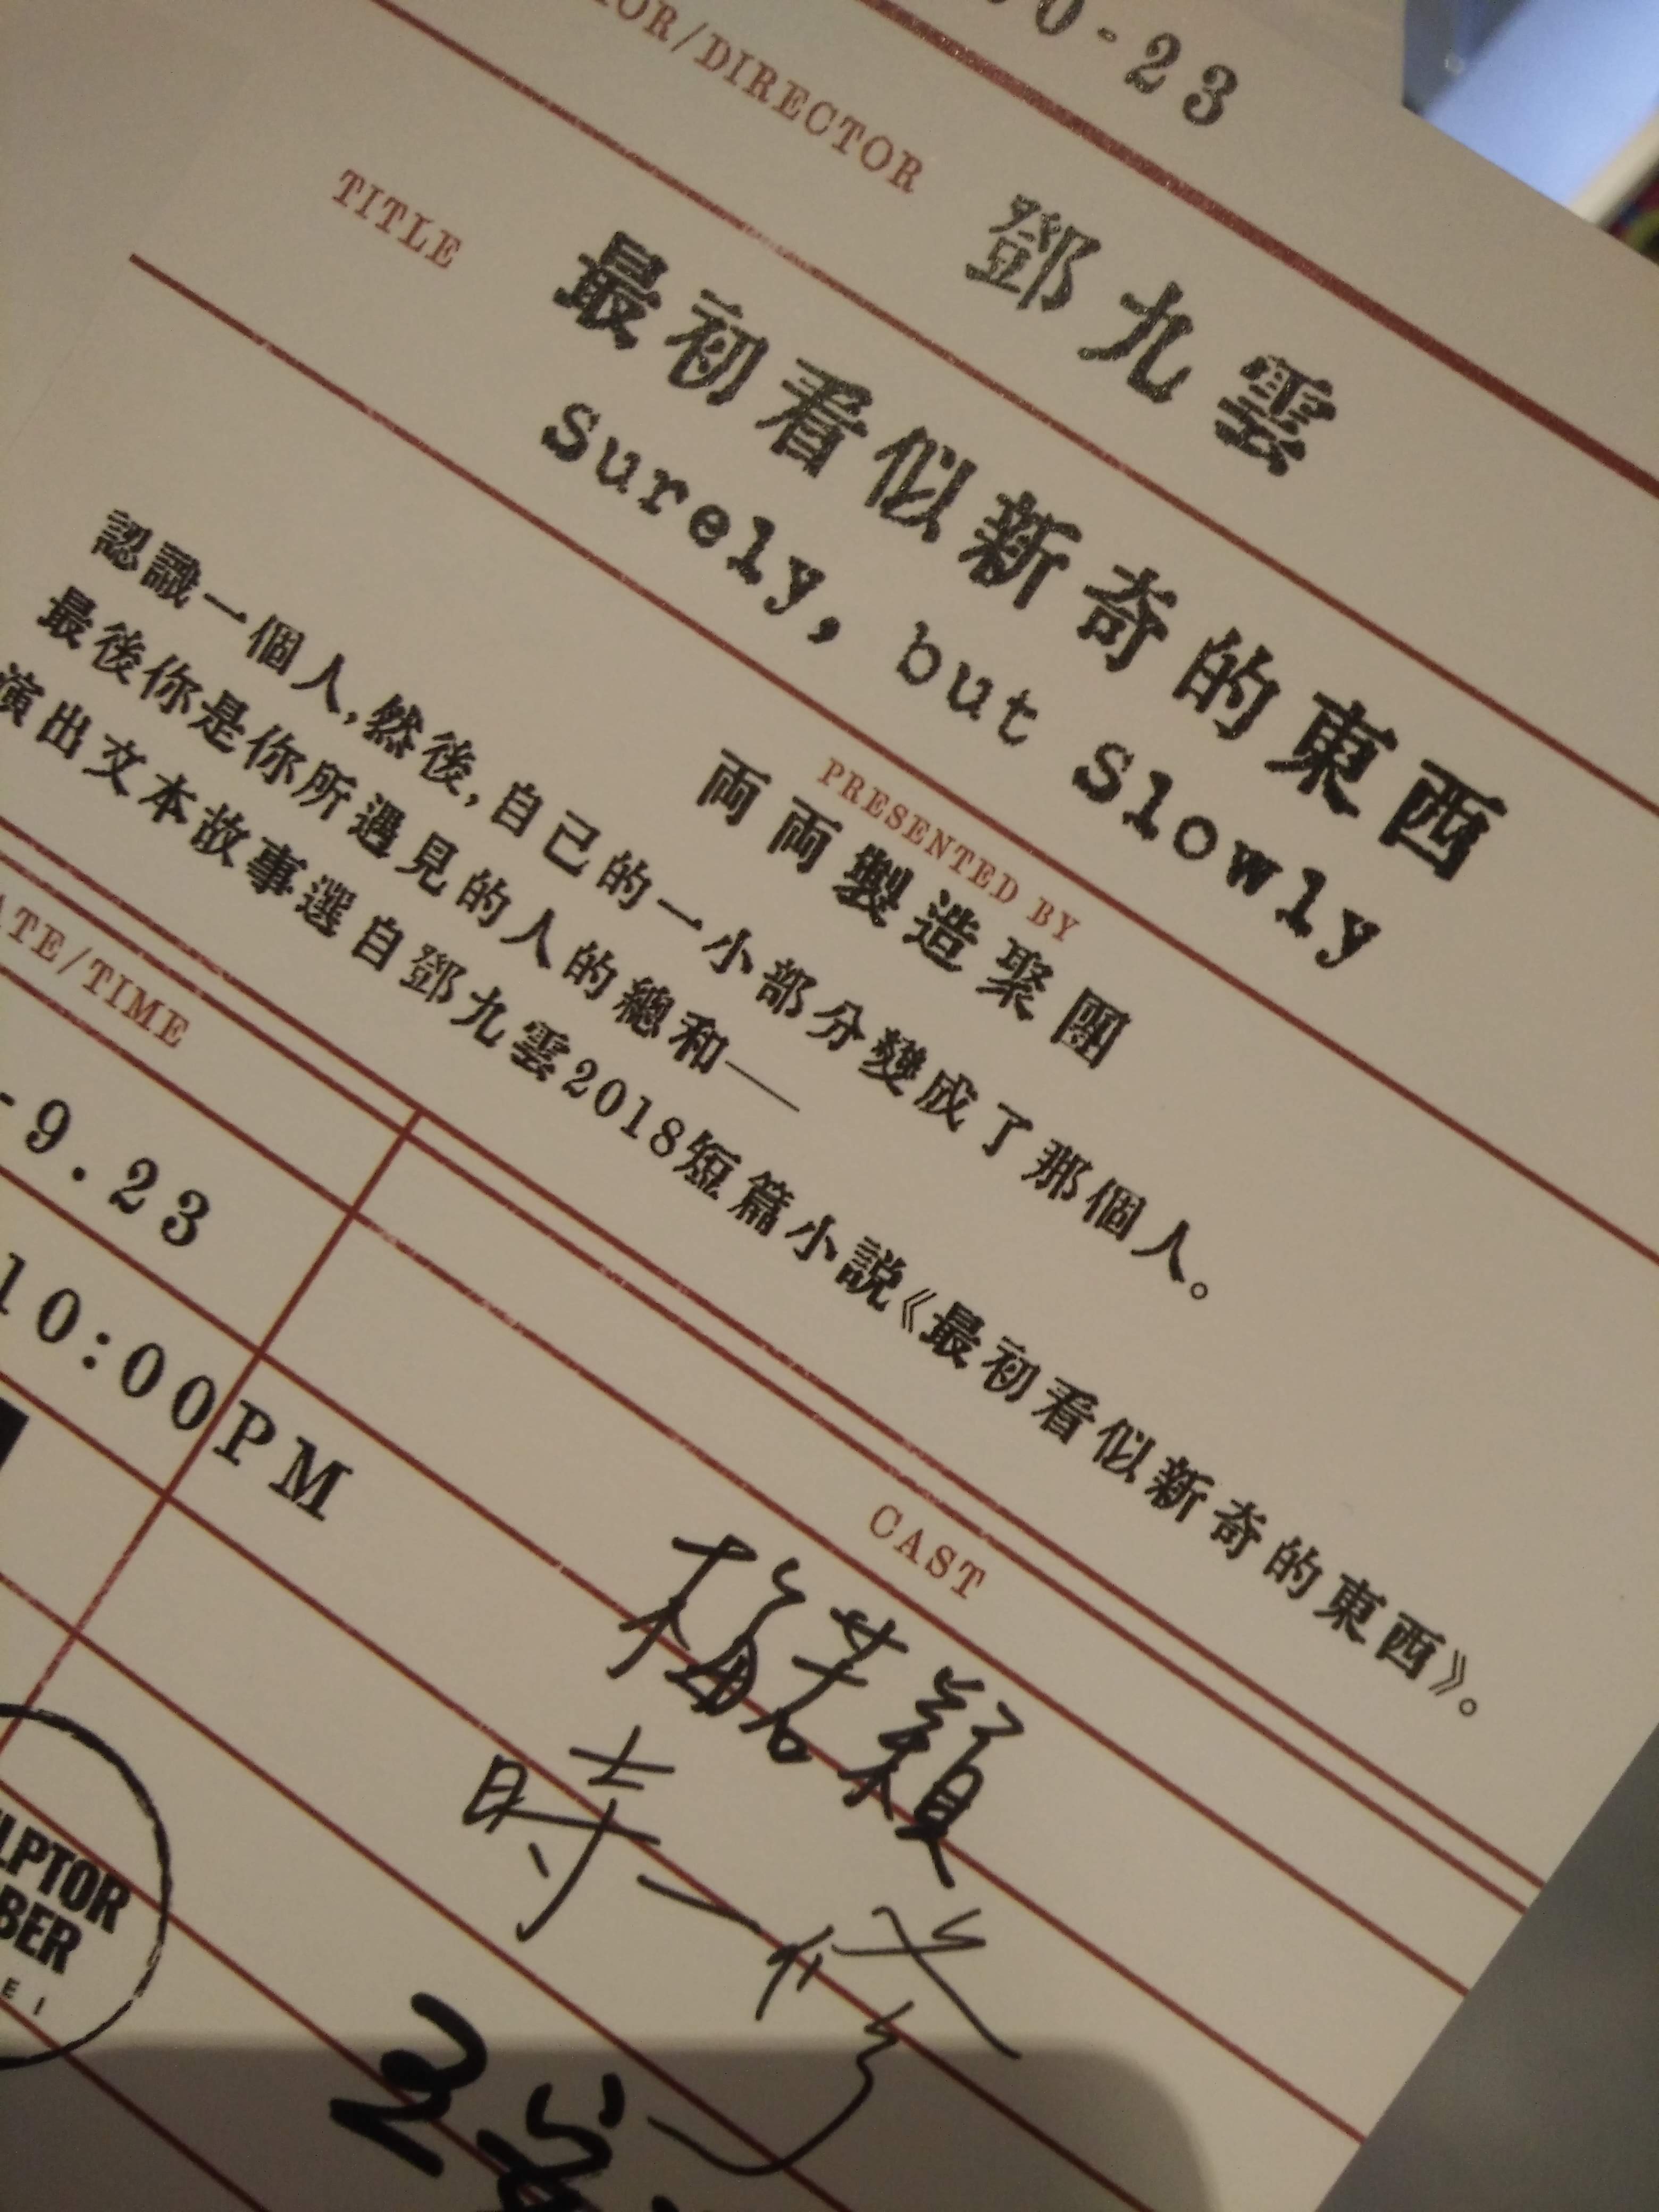 0-23
OR/DIRECTOR 鄧九雲
TITLE 最初看似新奇的東西
Surely, but Slowly
PRESENTED BY
両両製造聚團
認識一個人,然後,自己的一小部分變成了那個人。
最後你是你所遇見的人的總和——
演出文本故事選自鄧九雲2018短篇小說《最初看似新奇的東西》。
ATE/TIME
-9.23
10:00PM
CAST
梅若穎
時一修
王安
LPTOR
BER
EI